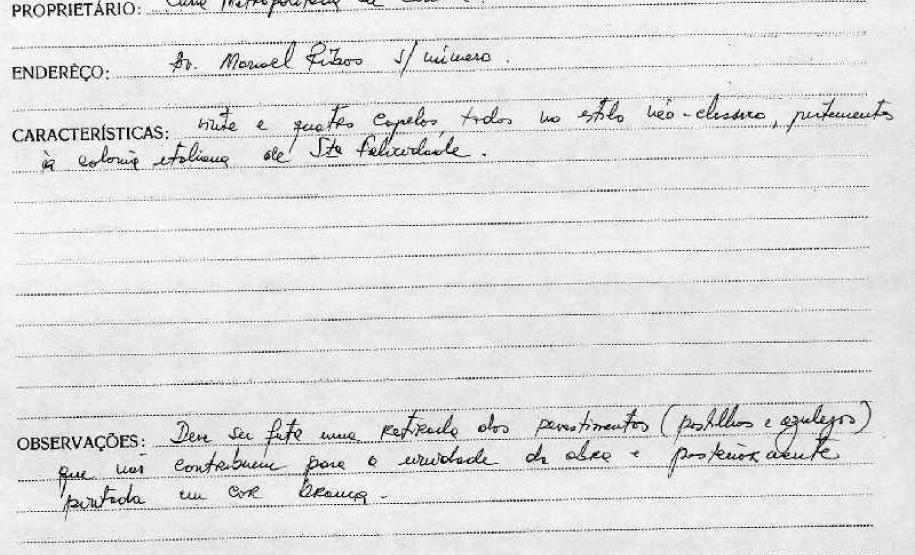 PROPRIETÁRIO: Cúria Metropolitana de
ENDERÊÇO: Av. Manoel Ribas s/ número.
CARACTERÍSTICAS: vinte e quatro capelas, todas no estilo néo-clássico, pertencentes
à colonia italiana de Sta Felicidade.
OBSERVAÇÕES: Deve ser feita uma retirada dos revestimentos (pastilhas e azulejos)
que não contribuem para a unidade da obra e posteriormente
pintada em cor branca.